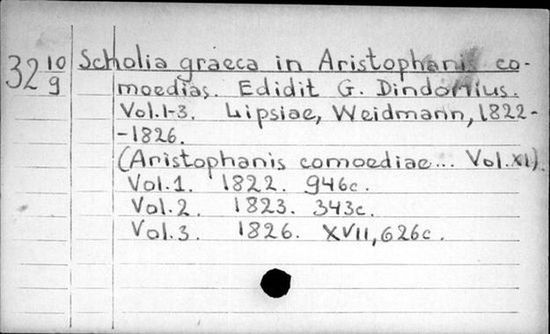 32 10/9
Scholia graeca in Aristophanis co-
moedias. Edidit G. Dindorfius.
Vol. 1-3. Lipsiae, Weidmann, 1822-
-1826.
(Aristophanis comoediae... Vol. XI).
Vol. 1. 1822. 946c.
Vol. 2. 1823. 343c.
Vol. 3. 1826. XVII, 626c.